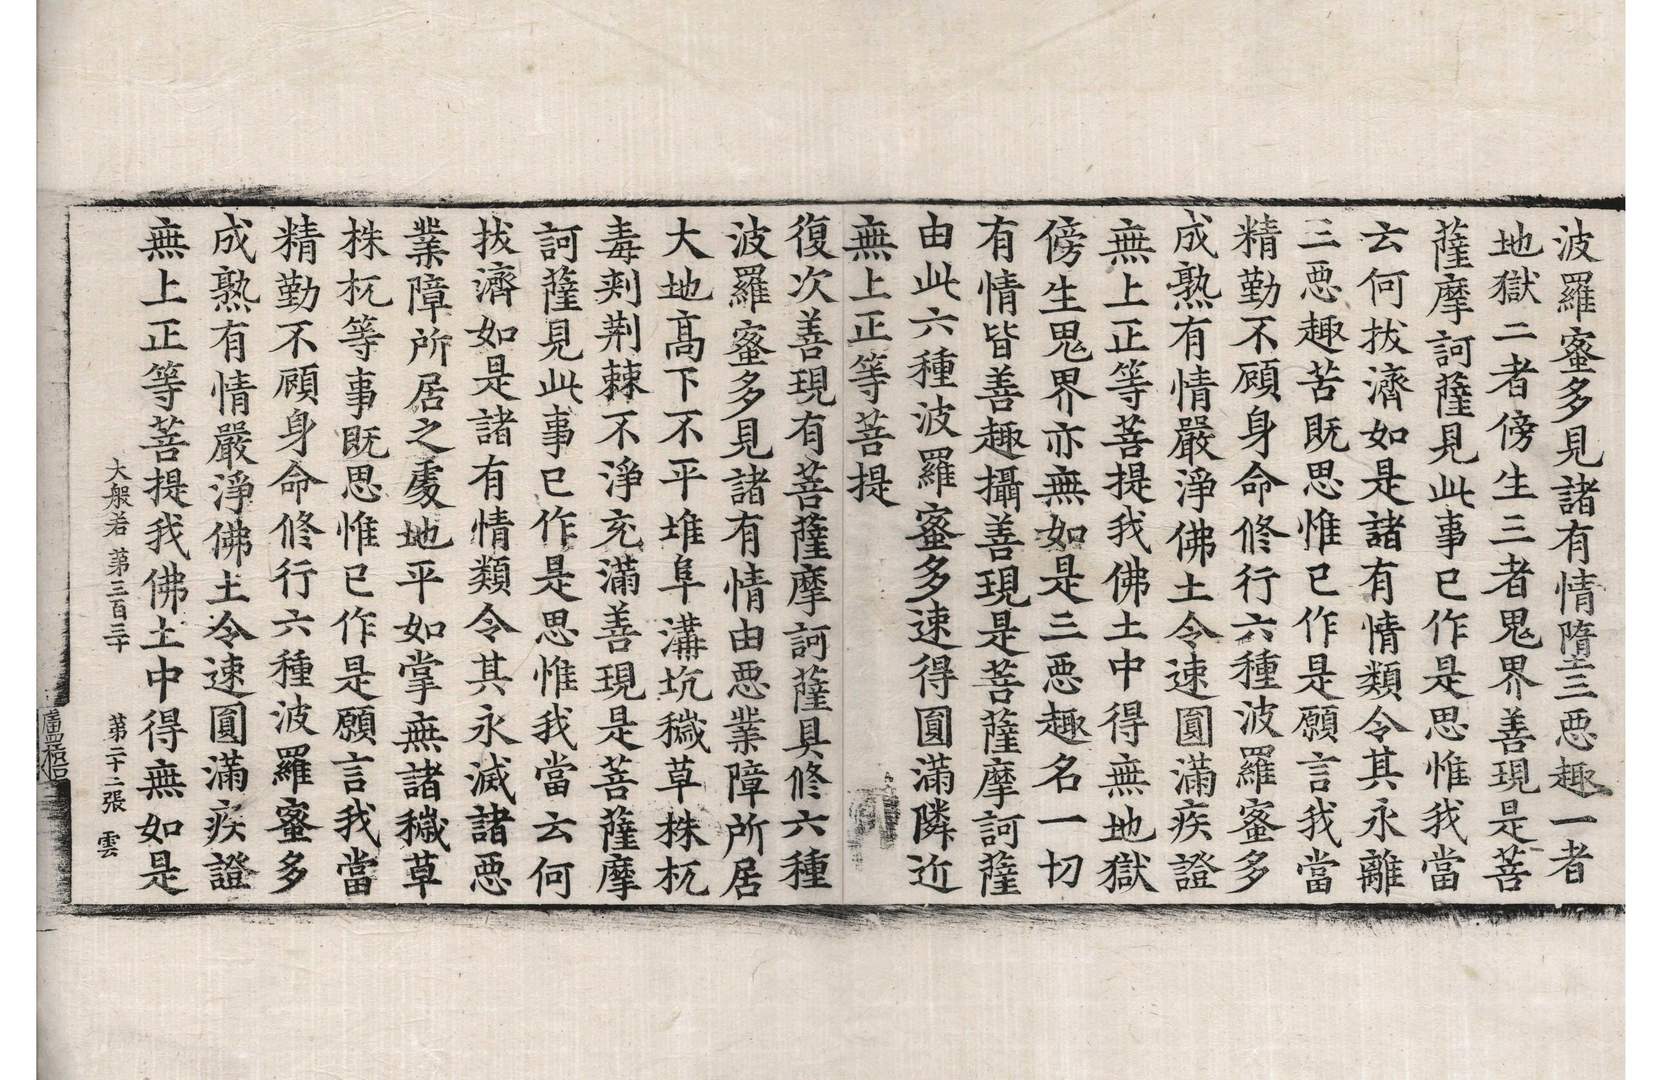 波羅蜜多見諸有情墮三惡趣一者
地獄二者傍生三者鬼界善現是菩
薩摩訶薩見此事已作是思惟我當
云何拔濟如是諸有情類令其永離
三惡趣苦既思惟已作是願言我當
精勤不顧身命修行六種波羅蜜多
成熟有情嚴淨佛土令速圓滿疾證
無上正等菩提我佛土中得無地獄
傍生鬼界亦無如是三惡趣名一切
有情皆善趣攝善現是菩薩摩訶薩
由此六種波羅蜜多速得圓滿隣近
無上正等菩提
復次善現有菩薩摩訶薩具修六種
波羅蜜多見諸有情由惡業障所居
大地高下不平堆阜溝坑穢草株杌
毒刺荊棘不淨充滿善現是菩薩摩
訶薩見此事已作是思惟我當云何
拔濟如是諸有情類令其永滅諸惡
業障所居之處地平如掌無諸穢草
株杌等事既思惟已作是願言我當
精勤不顧身命修行六種波羅蜜多
成熟有情嚴淨佛土令速圓滿疾證
無上正等菩提我佛土中得無如是
大般若 第三百三十 第二十二張 雲